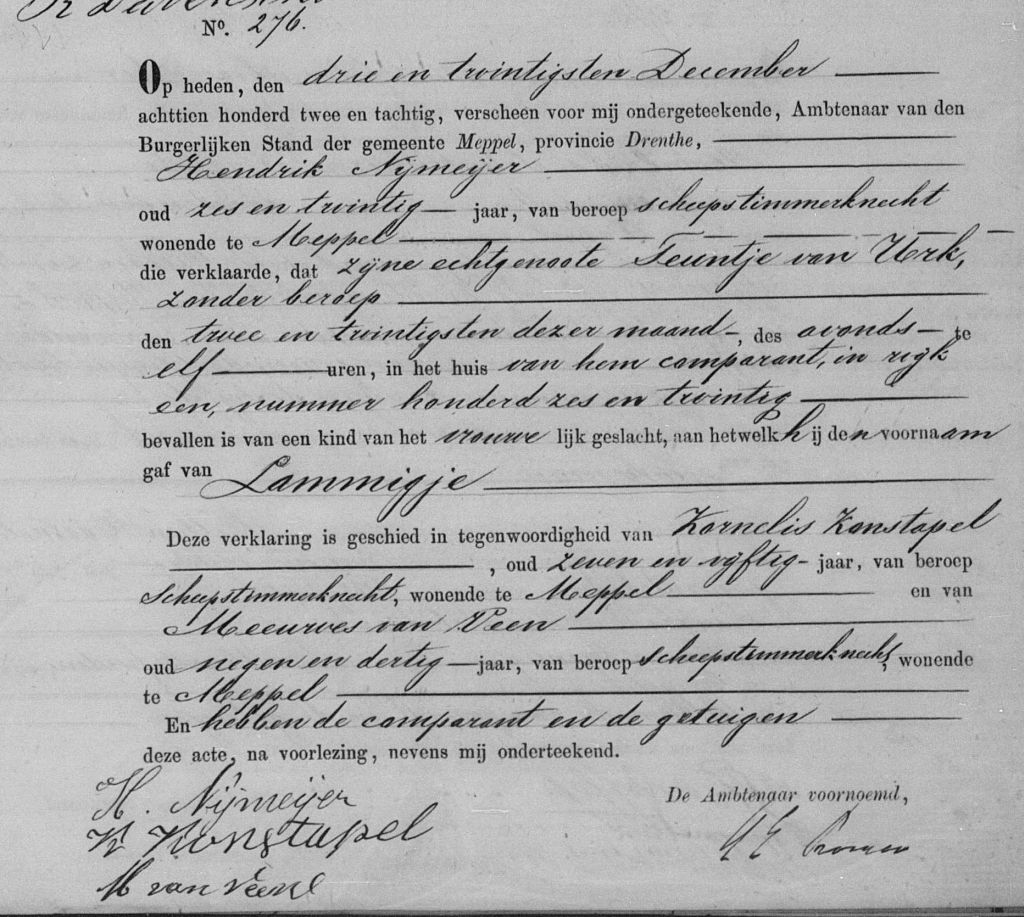 No. 276.
Op heden, den drie en twintigsten December
achttien honderd twee en tachtig, verscheen voor mij ondergeteekende, Ambtenaar van den
Burgerlijken Stand der gemeente Meppel, provincie Drenthe,
Hendrik Nijmeijer
oud zes en twintig jaar, van beroep scheepstimmerknecht
wonende te Meppel
die verklaarde, dat zijne echtgenoote Teuntje van Urk,
zonder beroep
den twee en twintigsten dezer maand, des avonds te
elf uren, in het huis van hem comparant, in wijk
een, nummer honderd zes en twintig
bevallen is van een kind van het vrouwe lijk geslacht, aan hetwelk hij den voornaam
gaf van Lammigje
Deze verklaring is geschied in tegenwoordigheid van Kornelis Konstapel
, oud zeven en vijftig jaar, van beroep
scheepstimmerknecht, wonende te Meppel en van
Meeuwes van Veen
oud negen en dertig jaar, van beroep scheepstimmerknecht, wonende
te Meppel
En hebben de comparant en de getuigen
deze acte, na voorlezing, nevens mij onderteekend.
H. Nijmeijer
K Konstapel
M van Veen
De Ambtenaar voornoemd,